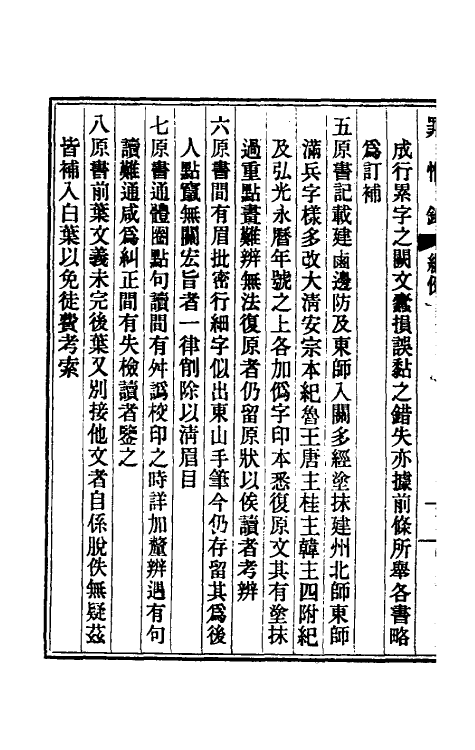 罪惟錄
成行累字之闕文蠹損誤黏之錯失亦據前條所舉各書略
爲訂補
五原書記載建鹵邊防及東師入關多經塗抹建州北師東師
滿兵字樣多改大淸安宗本紀魯王唐主桂主韓主四附紀
及弘光永曆年號之上各加僞字印本悉復原文其有塗抹
過重點畫難辨無法復原者仍留原狀以俟讀者考辨
六原書間有眉批密行細字似出東山手筆今仍存留其爲後
人點竄無關宏旨者一律削除以淸眉目
七原書通體圈點句讀間有舛譌校印之時詳加釐辨遇有句
讀難通咸爲糾正間有失檢讀者鑒之
八原書前葉文義未完後葉又別接他文者自係脫佚無疑茲
皆補入白葉以免徒費考索